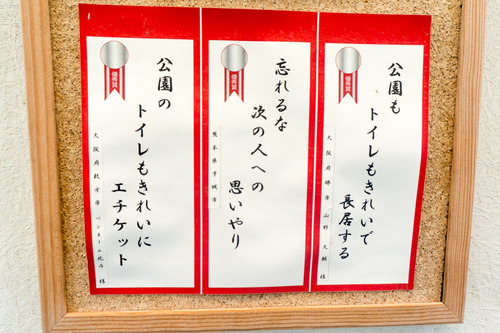 公園も
トイレもきれいで
長居する
優秀賞
忘れるな
次の人への
思いやり
優秀賞
熊本県宇城市
公園の
トイレもきれいに
エチケット
優秀賞
大阪府枚方市 ペンネーム北斗 様